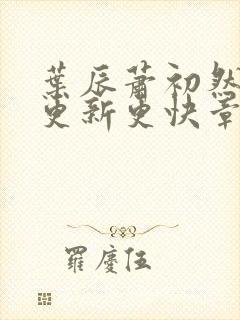 葉辰蕭初然
更新更快章
羅慶伍